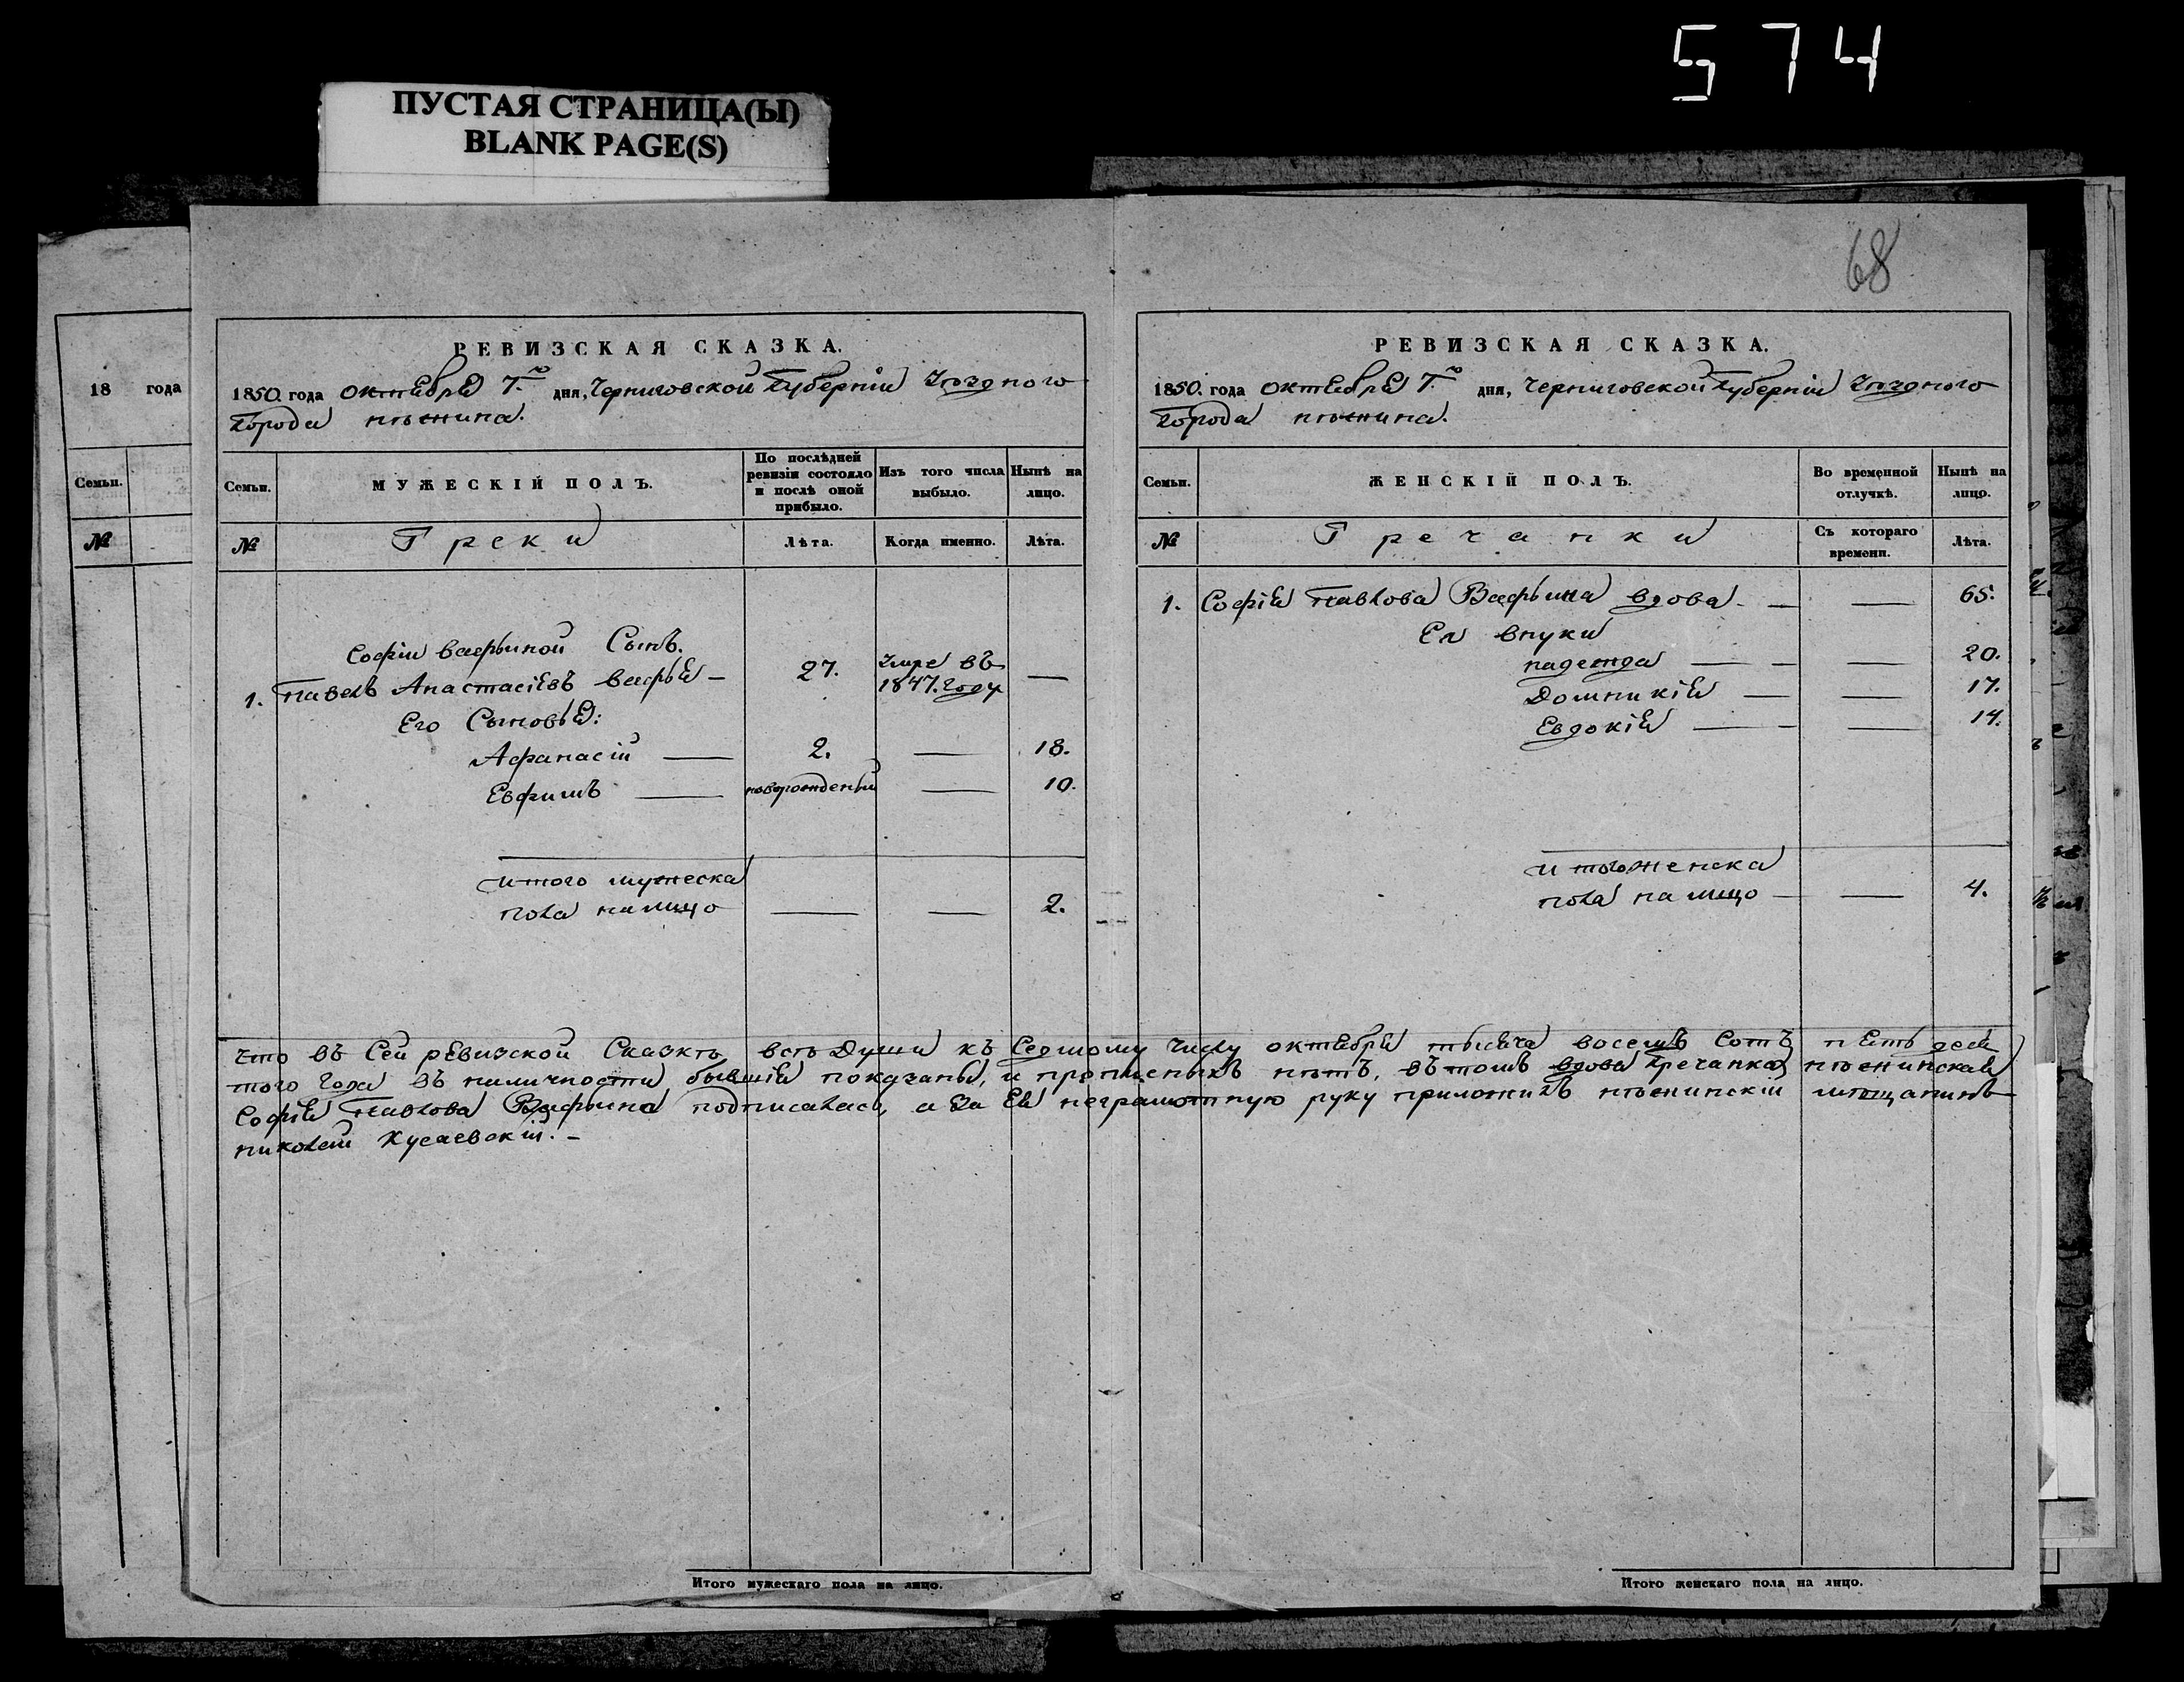 574
ПУСТАЯ СТРАНИЦА(Ы)
BLANK PAGE(S)
68
18 года
Семьи.
№
РЕВИЗСКАЯ СКАЗКА.
1850. года октября 7.го дня, Черниговской Губерніи Уѣзднаго
Города нѣжина.
Семьи.
МУЖЕСКІЙ ПОЛЪ.
По послѣдней ревизіи состояло и послѣ оной прибыло.
Изъ того числа выбыло.
Нынѣ на лицо.
№
Греки
Лѣта.
Когда именно.
Лѣта.
Софіи вафьиной Сынъ.
1. павелъ Анастасіевъ вафья — 27. умре въ 1847. году —
Его Сыновья:
Афанасій — 2. — 18.
Евфимъ — новорожденый — 10.
итого мужеска
пола налицо — — 2.
РЕВИЗСКАЯ СКАЗКА.
1850. года октября 7.го дня, Черниговской Губерніи Уѣзднаго
Города нѣжина.
Семьи.
ЖЕНСКІЙ ПОЛЪ.
Во временной отлучкѣ.
Нынѣ на лицо.
№
Гречанки
Съ котораго времени.
Лѣта.
1. Софія павлова Вафьина вдова. — — 65.
Ея внуки
надежда — — 20.
Домникія — — 17.
Евдокія — — 14.
итого женска
пола на лицо — — 4.
что въ Сей ревизской Сказкѣ всѣ Души къ Седмому числу октября тысяча восемъ Сотъ пять деся
того года въ наличности бывшія показаны, и прописныхъ нѣтъ, въ томъ вдова Гречанка нѣжинская
Софія павлова Вафьина подписалась, а За Ея неграмотную руку приложилъ нѣжинскій мѣщанинъ
николай Кусаевскій. —
Итого мужескаго пола на лицо.
Итого женскаго пола на лицо.